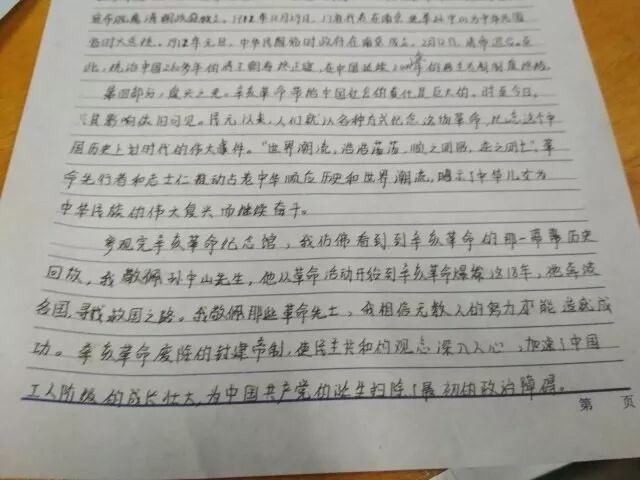 宣布脱离清朝政府独立。1912年12月29日，17省代表在南京选举孙中山为中华民国
临时大总统。1912年元旦，中华民国临时政府在南京成立。2月12日，清帝退位。至
此，统治中国260多年的清王朝寿终正寝，在中国延续2000年的君主专制制度终结。
第四部分，复兴之光。辛亥革命带给中国社会的变化是巨大的，时至今日，
其影响依旧可见。民元以来，人们就以各种方式纪念这场革命，纪念这个中
国历史上划时代的伟大事件。“世界潮流，浩浩荡荡，顺之则昌，逆之则亡”，革
命先行者和志士仁推动古老中华顺应历史和世界潮流，昭示了中华儿女为
中华民族的伟大复兴而继续奋斗。
参观完辛亥革命纪念馆，我仿佛看到到辛亥革命的那一幕幕历史
回放，我敬佩孙中山先生，他从革命活动开始到辛亥革命爆发这18年，他奔波
各国，寻找救国之路。我敬佩那些革命先士，我相信无数人的努力才能造就成
功。辛亥革命废除的封建帝制，使民主共和的观念深入人心，加速了中国
工人阶级的成长壮大，为中国共产党的诞生扫除了最初的政治障碍。
第 页